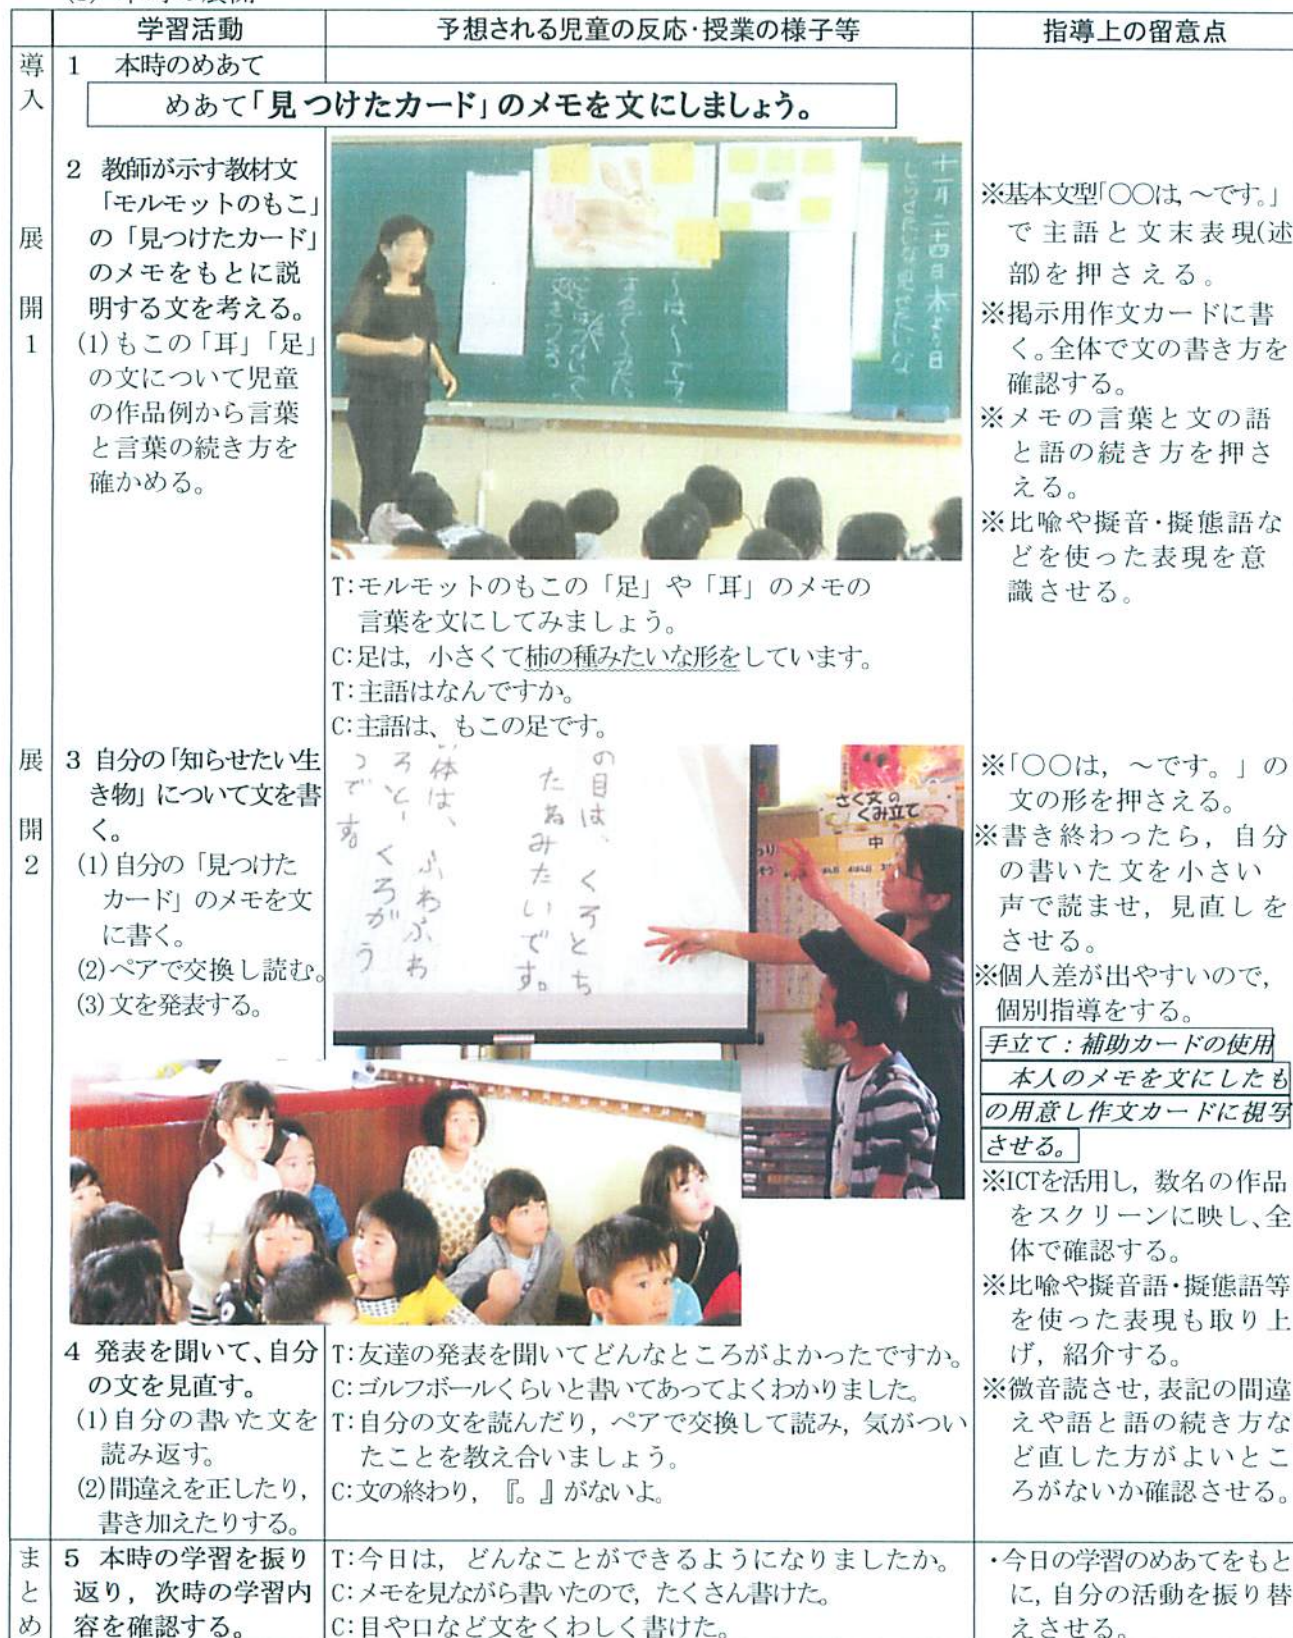 学習活動
予想される児童の反応・授業の様子等
指導上の留意点
導入
1 本時のめあて
めあて「見つけたカード」のメモを文にしましょう。
展開1
2 教師が示す教材文
「モルモットのもこ」
の「見つけたカード」
のメモをもとに説
明する文を考える。
(1)もこの「耳」「足」
の文について児童
の作品例から言葉
と言葉の続き方を
確かめる。
十一月二十四日木よう日
T:モルモットのもこの「足」や「耳」のメモの
言葉を文にしてみましょう。
C:足は，小さくて柿の種みたいな形をしています。
T:主語はなんですか。
C:主語は、もこの足です。
※基本文型「〇〇は，～です。」
で主語と文末表現(述
部)を押さえる。
※掲示用作文カードに書
く。全体で文の書き方を
確認する。
※メモの言葉と文の語
と語の続き方を押さ
える。
※比喩や擬音・擬態語な
どを使った表現を意
識させる。
展開2
3 自分の「知らせたい生
き物」について文を書
く。
(1)自分の「見つけた
カード」のメモを文
に書く。
(2)ペアで交換し読む。
(3)文を発表する。
の目は、くろとち
たねみたいです。
体は、ふわふわ
ろと―くろがう
つです
さく文の
くみ立て
中
※「〇〇は，～です。」の
文の形を押さえる。
※書き終わったら，自分
の書いた文を小さい
声で読ませ，見直しを
させる。
※個人差が出やすいので，
個別指導をする。
手立て：補助カードの使用
本人のメモを文にしたも
の用意し作文カードに視写
させる。
※ICTを活用し，数名の作品
をスクリーンに映し、全
体で確認する。
※比喩や擬音語・擬態語等
を使った表現も取り上
げ，紹介する。
※微音読させ，表記の間違
えや語と語の続き方な
ど直した方がよいとこ
ろがないか確認させる。
4 発表を聞いて、自分
の文を見直す。
(1)自分の書いた文を
読み返す。
(2)間違えを正したり，
書き加えたりする。
T:友達の発表を聞いてどんなところがよかったですか。
C:ゴルフボールくらいと書いてあってよくわかりました。
T:自分の文を読んだり，ペアで交換して読み，気がつい
たことを教え合いましょう。
C:文の終わり，『。』がないよ。
まとめ
5 本時の学習を振り
返り，次時の学習内
容を確認する。
T:今日は，どんなことができるようになりましたか。
C:メモを見ながら書いたので，たくさん書けた。
C:目や口など文をくわしく書けた。
・今日の学習のめあてをもと
に，自分の活動を振り替
えさせる。